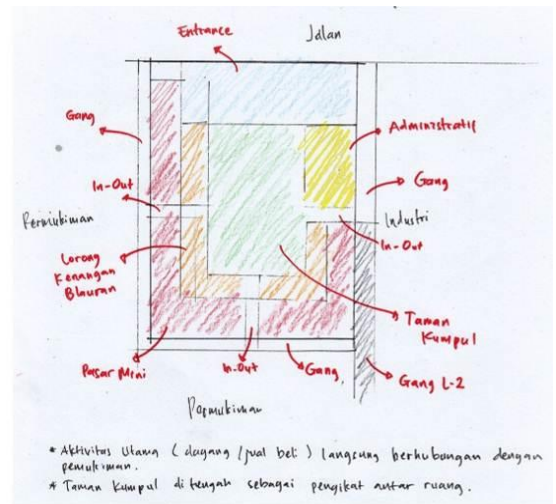 Entrance
Jalan
Gang
Administratif
Gang
In-Out
Permukiman
Industri
In-Out
Lorong
Kenangan
Blauran
Taman
Kumpul
Pasar Mini
In-Out
Gang
Gang L-2
Permukiman
* Aktivitas Utama ( dagang / jual beli ) langsung berhubungan dengan
pemukiman.
* Taman Kumpul di tengah sebagai pengikat antar ruang.